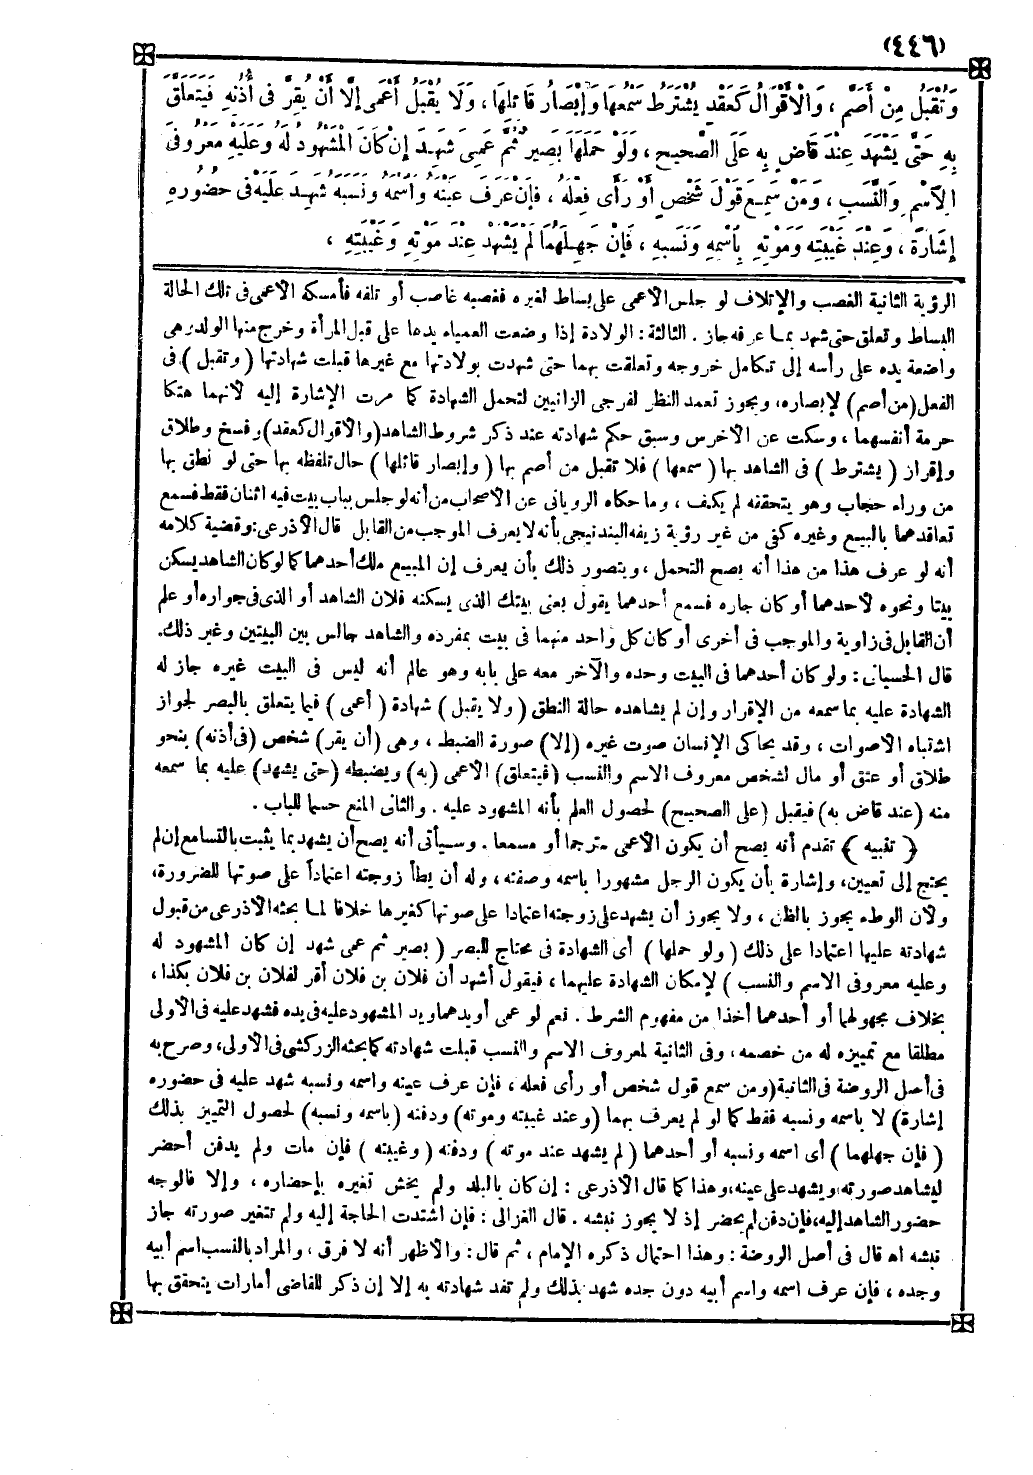 (٤٤٦)
وَتُقْبَلُ مِنْ أَصَمَّ ، وَالْأَقْوَالُ كَعَقْدٍ يُشْتَرَطُ سَمْعُهَا وَإِبْصَارُ قَائِلِهَا ، وَلَا يُقْبَلُ أَعْمَى إِلَّا أَنْ يُقِرَّ فِى أُذُنِهِ فَيَتَعَلَّقَ
بِهِ حَتَّى يَشْهَدَ عِنْدَ قَاضٍ بِهِ عَلَى الصَّحِيحِ ، وَلَوْ حَمَلَهَا بَصِيرٌ ثُمَّ عَمِىَ شَهِدَ إِنْ كَانَ الْمَشْهُودُ لَهُ وَعَلَيْهِ مَعْرُوفَىِ
الِاسْمِ وَالنَّسَبِ ، وَمَنْ سَمِعَ قَوْلَ شَخْصٍ أَوْ رَأَى فِعْلَهُ ، فَإِنْ عَرَفَ عَيْنَهُ وَاسْمَهُ وَنَسَبَهُ شَهِدَ عَلَيْهِ فِى حُضُورِهِ
إِشَارَةً ، وَعِنْدَ غَيْبَتِهِ وَمَوْتِهِ بِاسْمِهِ وَنَسَبِهِ ، فَإِنْ جَهِلَهُمَا لَمْ يَشْهَدْ عِنْدَ مَوْتِهِ وَغَيْبَتِهِ ،
الرؤية الثانية الغصب والإتلاف لو جلس الأعمى على بساط لغيره فغصبه غاصب أو تلفه فأمسكه الأعمى فى تلك الحالة
البساط وتعلق حتى شهد بما عرفه جاز . الثالثة : الولادة إذا وضعت العمياء يدها على قبل المرأة وخرج منها الولد وهى
واضعة يده على رأسه إلى تكامل خروجه وتعلقت بهما حتى شهدت بولادتها مع غيرها قبلت شهادتها ( وتقبل ) فى
الفعل (من أصم) لإبصاره، ويجوز تعمد النظر لفرجى الزانيين لتحمل الشهادة كما مرت الإشارة إليه لأنهما هتكا
حرمة أنفسهما ، وسكت عن الأخرس وسبق حكم شهادته عند ذكر شروط الشاهد (والأقوال كعقد) وفسخ وطلاق
وإقرار ( يشترط ) فى الشاهد بها ( سمعها ) فلا تقبل من أصم بها ( وإبصار قائلها ) حال تلفظه بها حتى لو نطق بها
من وراء حجاب وهو يتحققه لم يكف ، وما حكاه الرويانى عن الأصحاب من أنه لو جلس بباب بيت فيه اثنان فقط فسمع
تعاقدهما بالبيع وغيره كفى من غير رؤية زيفه البندنيجى بأنه لا يعرف الموجب من القابل قال الأذرعى : وقضية كلامه
أنه لو عرف هذا من هذا أنه يصح التحمل ، ويتصور ذلك بأن يعرف إن المبيع ملك أحدهما كما لو كان الشاهد يسكن
بيتا ونحوه لأحدهما أو كان جاره فسمع أحدهما يقول بعنى بيتك الذى يسكنه فلان الشاهد أو الذى فى جواره أو علم
أن القابل فى زاوية والموجب فى أخرى أو كان كل واحد منهما فى بيت بمفرده والشاهد جالس بين البيتين وغير ذلك.
قال الحسبانى : ولو كان أحدهما فى البيت وحده والآخر معه على بابه وهو عالم أنه ليس فى البيت غيره جاز له
الشهادة عليه بما سمعه من الإقرار وإن لم يشاهده حالة النطق ( ولا يقبل ) شهادة ( أعمى ) فيما يتعلق بالبصر لجواز
اشتباه الأصوات ، وقد يحاكى الإنسان صوت غيره (إلا) صورة الضبط ، وهى (أن يقر) شخص (فى أذنه) بنحو
طلاق أو عتق أو مال لشخص معروف الاسم والنسب (فيتعلق) الأعمى (به) ويضبطه (حتى يشهد) عليه بما سمعه
منه (عند قاض به) فيقبل (على الصحيح) لحصول العلم بأنه المشهود عليه . والثانى المنع حسما للباب .
﴿ تنبيه ﴾ تقدم أنه يصح أن يكون الأعمى مترجما أو مسمعا . وسيأتى أنه يصح أن يشهد بما يثبت بالتسامع إن لم
يحتج إلى تعيين، وإشارة بأن يكون الرجل مشهورا باسمه وصفته ، وله أن يطأ زوجته اعتماداً على صوتها للضرورة،
ولأن الوطء يجوز بالظن ، ولا يجوز أن يشهد على زوجته اعتمادا على صوتها كغيرها خلافا لما بحثه الأذرعى من قبول
شهادته عليها اعتمادا على ذلك ( ولو حملها ) أى الشهادة فى محتاج للبصر ( بصير ثم عمى شهد إن كان المشهود له
وعليه معروفى الاسم والنسب ) لإمكان الشهادة عليهما ، فيقول أشهد أن فلان بن فلان أقر لفلان بن فلان بكذا ،
بخلاف مجهولهما أو أحدهما أخذا من مفهوم الشرط . نعم لو عمى أو يدهما ويد المشهود عليه فى يده فشهد عليه فى الأولى
مطلقا مع تمييزه له من خصمه ، وفى الثانية لمعروف الاسم والنسب قبلت شهادته كما بحثه الزركشى فى الأولى، وصرح به
فى أصل الروضة فى الثانية (ومن سمع قول شخص أو رأى فعله ، فإن عرف عينه واسمه ونسبه شهد عليه فى حضوره
إشارة) لا باسمه ونسبه فقط كما لو لم يعرف بهما (وعند غيبته وموته) ودفنه (باسمه ونسبه) لحصول التمييز بذلك
( فإن جهلهما ) أى اسمه ونسبه أو أحدهما ( لم يشهد عند موته ) ودفنه ( وغيبته ) فإن مات ولم يدفن أحضر
ليشاهد صورته، ويشهد على عينه، وهذا كما قال الأذرعى : إن كان بالبلد ولم يخش تغيره بإحضاره ، وإلا فالوجه
حضور الشاهد إليه، فإن دفن لم يحضر إذ لا يجوز نبشه . قال الغزالى : فإن اشتدت الحاجة إليه ولم تتغير صورته جاز
نبشه اه قال فى أصل الروضة : وهذا احتمال ذكره الإمام ، ثم قال : والأظهر أنه لا فرق ، والمراد بالنسب اسم أبيه
وجده ، فإن عرف اسمه واسم أبيه دون جده شهد بذلك ولم تفد شهادته به إلا إن ذكر للقاضى أمارات يتحقق بها